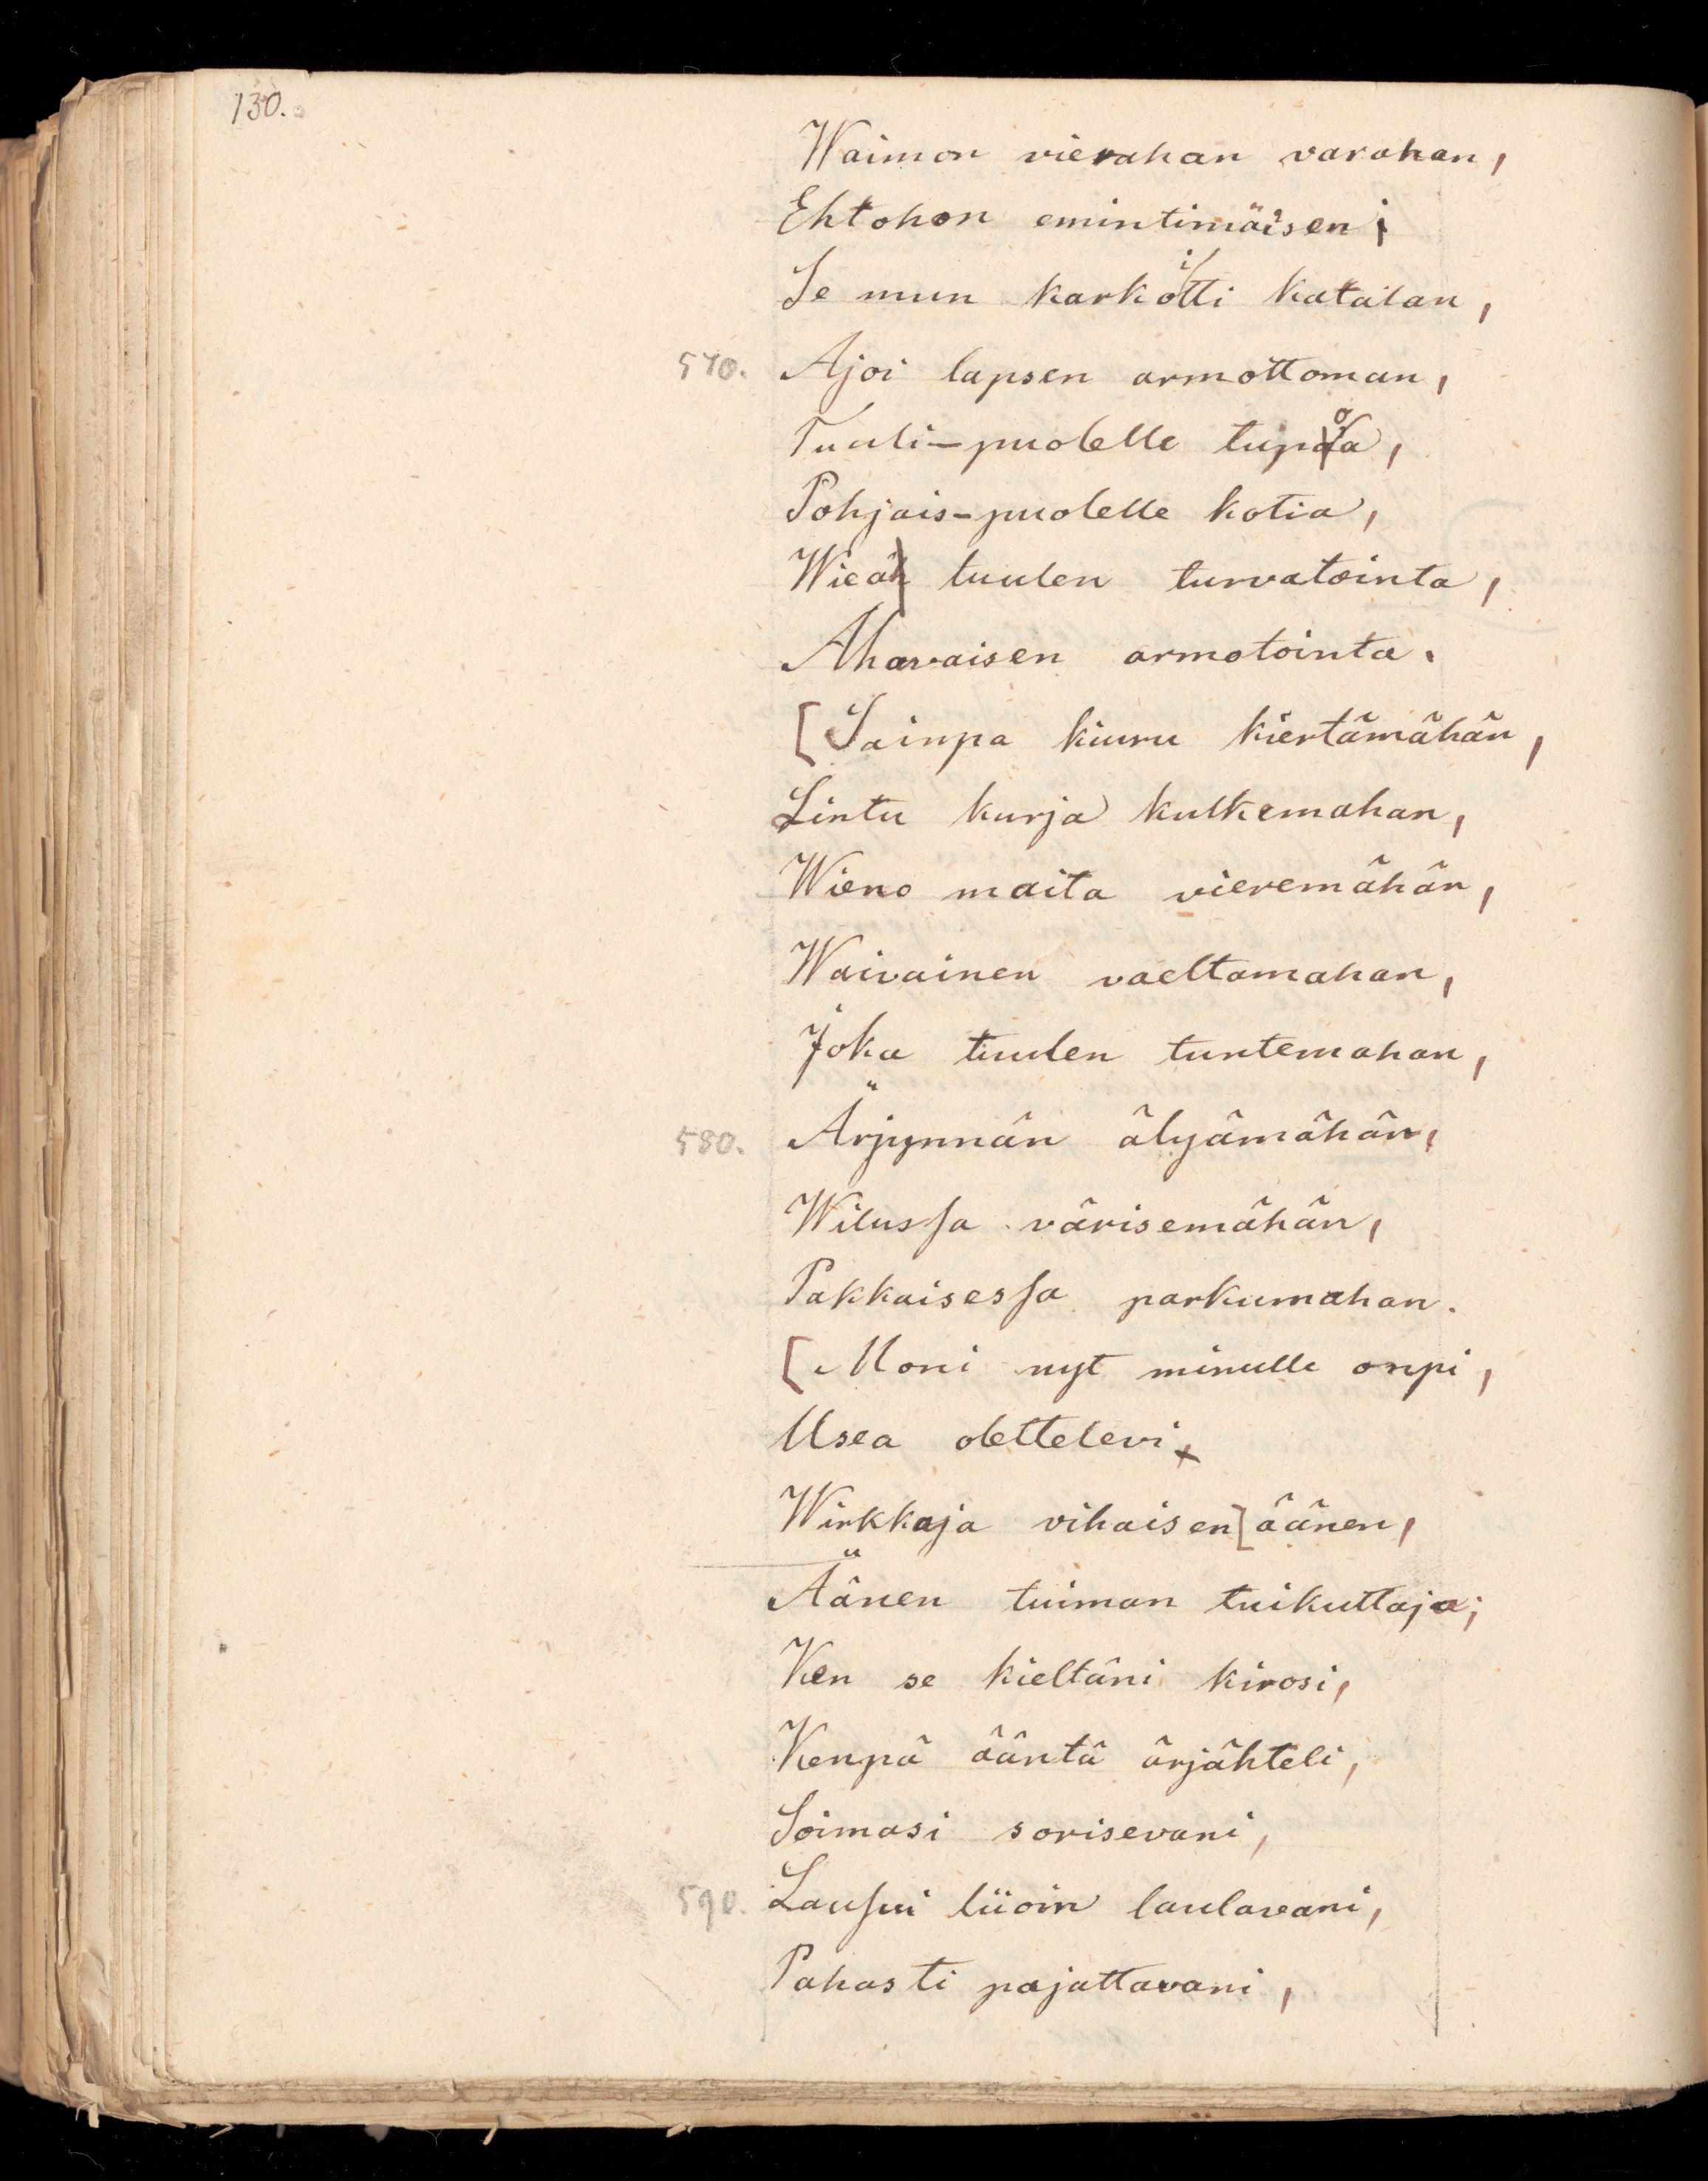 130.
Waimon vierahan varahan,
Ehtohon emintimäisen;
Se mun karkoitti katalan,
570. Ajoi lapsen armottoman,
Tuuli-puolelle tupoa,
Pohjais-puolelle kotia,
Wieä tuulen turvatointa,
Ahavaisen armotointa.
[Sainpa kiuru kiertämähän,
Lintu kurja kulkemahan,
Wieno maita vieremähän,
Waivainen vaeltamahan,
Joka tuulen tuntemahan,
580. Ärjynnän älyämähän,
Wilussa värisemähän,
Pakkaisessa parkumahan.
[Moni nyt minulle onpi,
Usea olettelevi
Wirkkaja vihaisen [äänen,
Äänen tuiman tuikuttaja;
Ken se kieltäni kirosi,
Kenpä ääntä ärjähteli,
Soimasi sorisevani,
590. Lausui liioin laulavani,
Pahasti pajattavani,